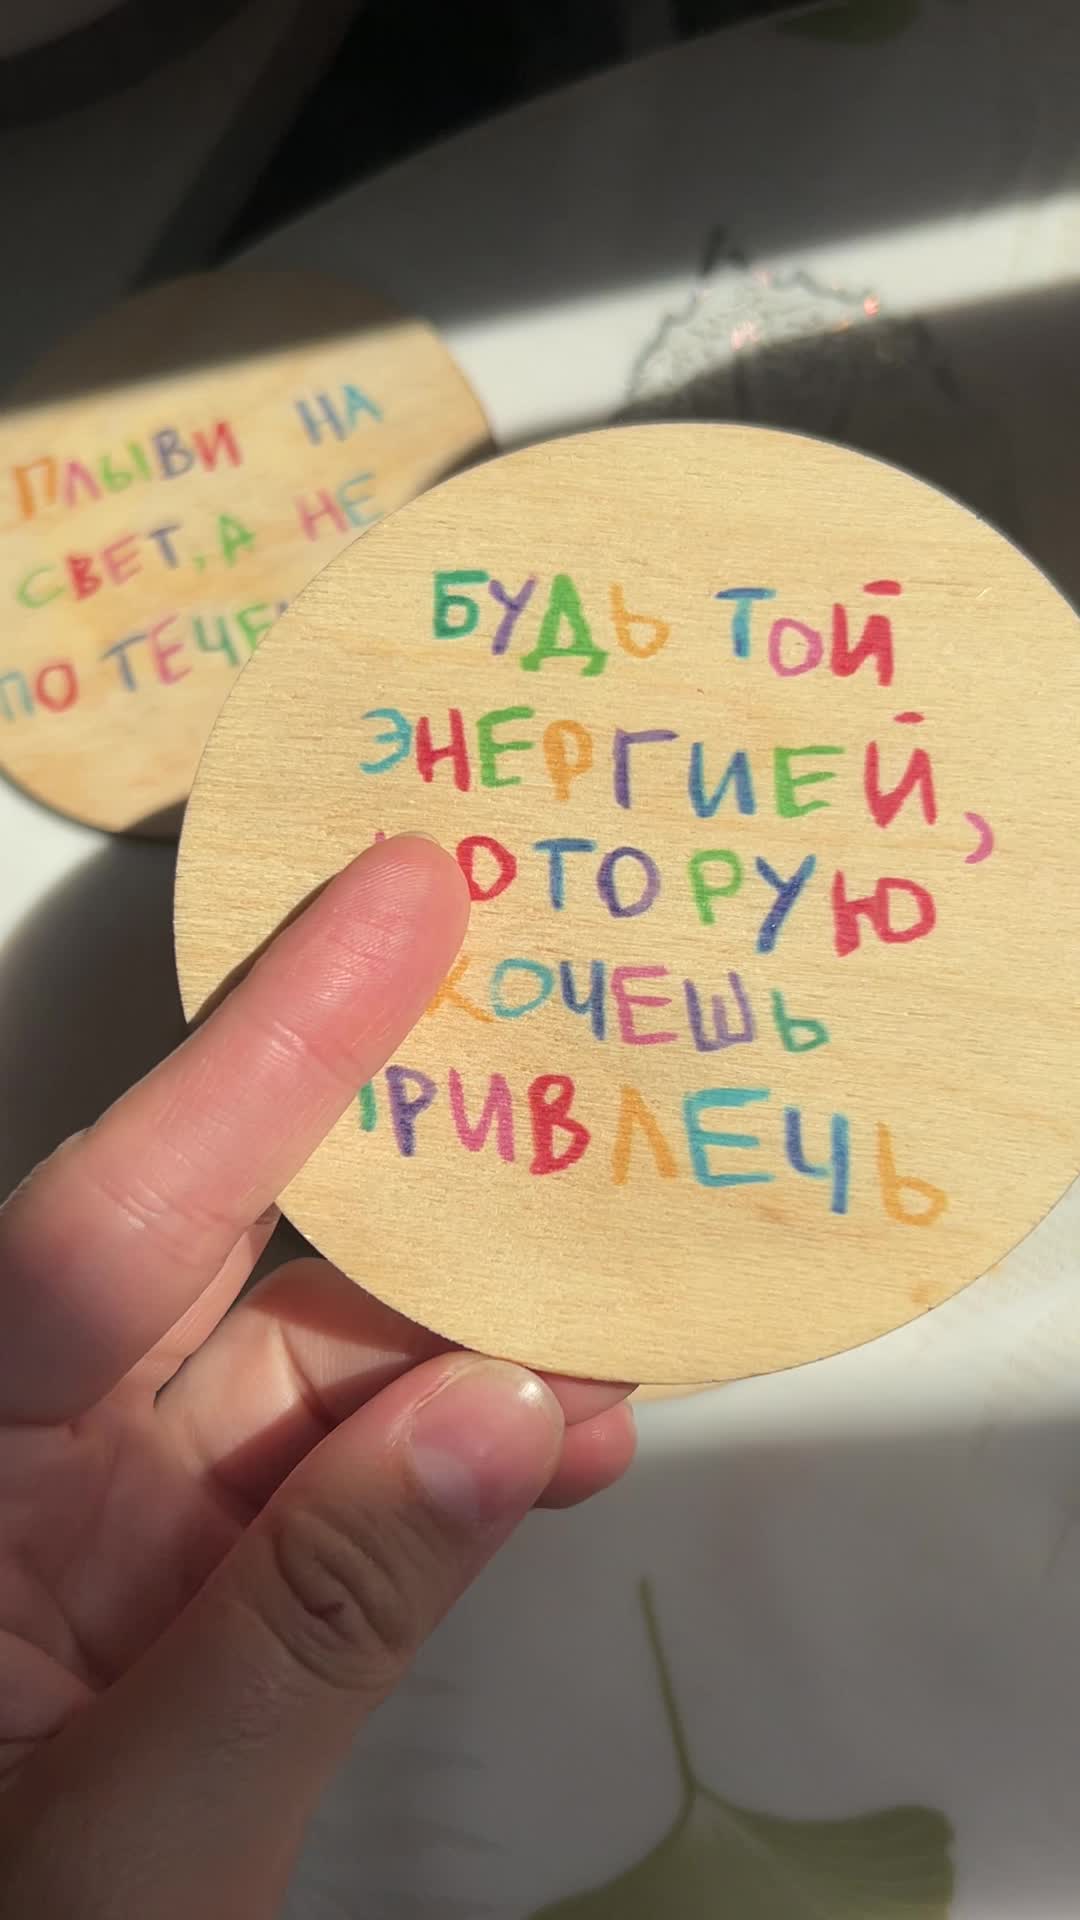 ПЛЫВИ НА
СВЕТ, А НЕ
ПО
БУДЬ ТОЙ
ЭНЕРГИЕЙ,
КОТОРУЮ
ХОЧЕШЬ
ПРИВЛЕЧЬ